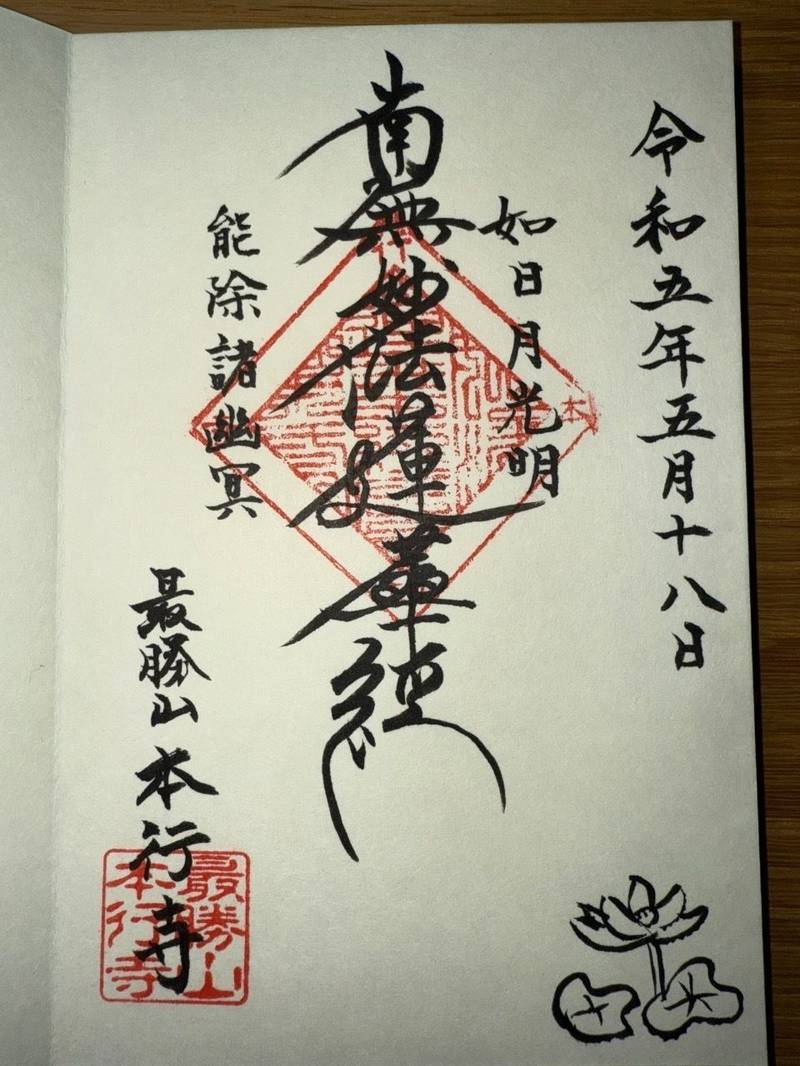 令和五年五月十八日
如日月光明
南無妙法蓮華経
能除諸幽冥
最勝山 本行寺
最勝山
本行寺